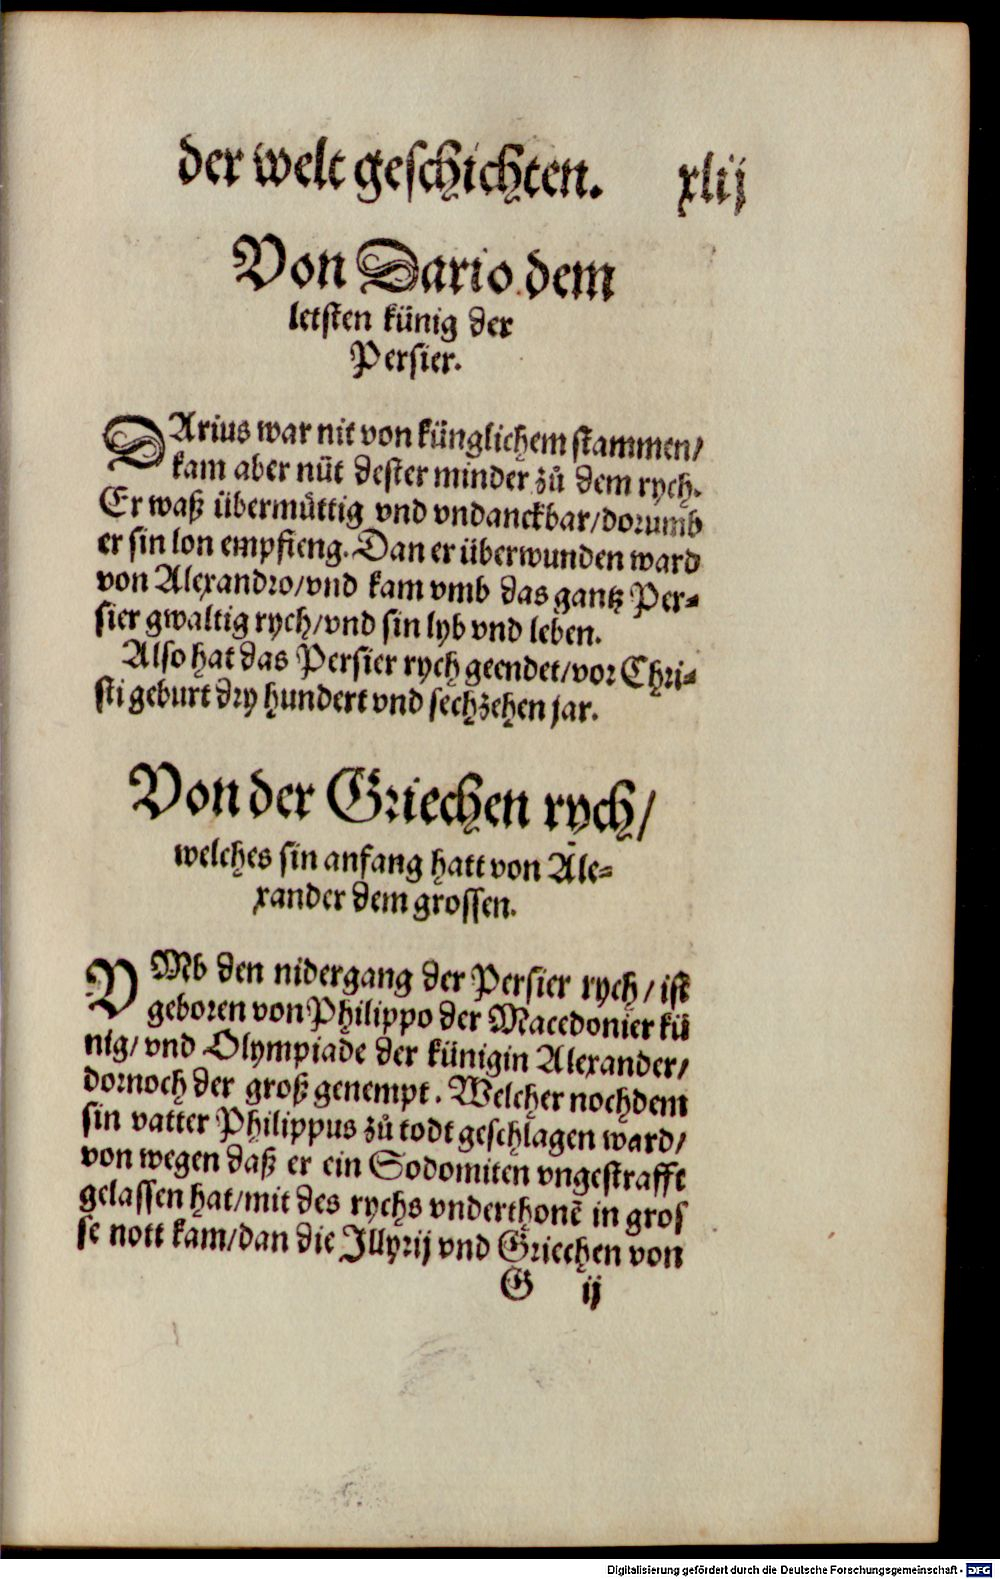 der welt geschichten. xlij
Von Dario dem
letsten künig der
Persier.
DArius war nit von künglichem stammen/
kam aber nüt dester minder zů dem rych.
Er waß übermůttig vnd vndanckbar/dorumb
er sin lon empfieng. Dan er überwunden ward
von Alexandro/vnd kam vmb das gantz Per⸗
sier gwaltig rych/vnd sin lyb vnd leben.
Also hat das Persier rych geendet/vor Chri⸗
sti geburt dry hundert vnd sechzehen jar.
Von der Griechen rych/
welches sin anfang hatt von Ale⸗
xander dem grossen.
VMb den nidergang der Persier rych/ist
geboren von Philippo der Macedonier kü
nig/vnd Olympiade der künigin Alexander/
dornoch der groß genempt. Welcher nochdem
sin vatter Philippus zů todt geschlagen ward/
von wegen daß er ein Sodomiten vngestrafft
gelassen hat/mit des rychs vnderthonē in gros
se nott kam/dan die Jllyrij vnd Griechen von
G ij
Digitalisierung gefördert durch die Deutsche Forschungsgemeinschaft - DFG